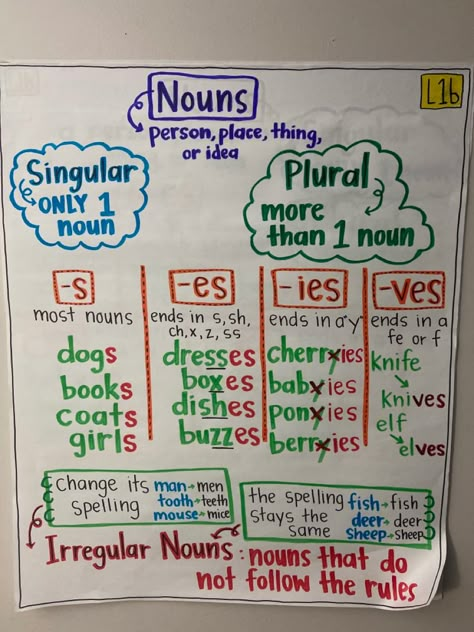 Nouns
L1b
person, place, thing,
or idea
Singular
ONLY 1
noun
Plural
more
than 1 noun
-s
most nouns
dogs
books
coats
girls
-es
ends in s, sh,
ch, x, z, ss
dresses
boxes
dishes
buzzes
-ies
ends in a "y"
cherryies
babyies
ponyies
berryies
-ves
ends in a
fe or f
knife
knives
elf
elves
change its
spelling
man→men
tooth→teeth
mouse→mice
the spelling
stays the
same
fish→fish
deer→deer
sheep→sheep
Irregular Nouns: nouns that do
not follow the rules